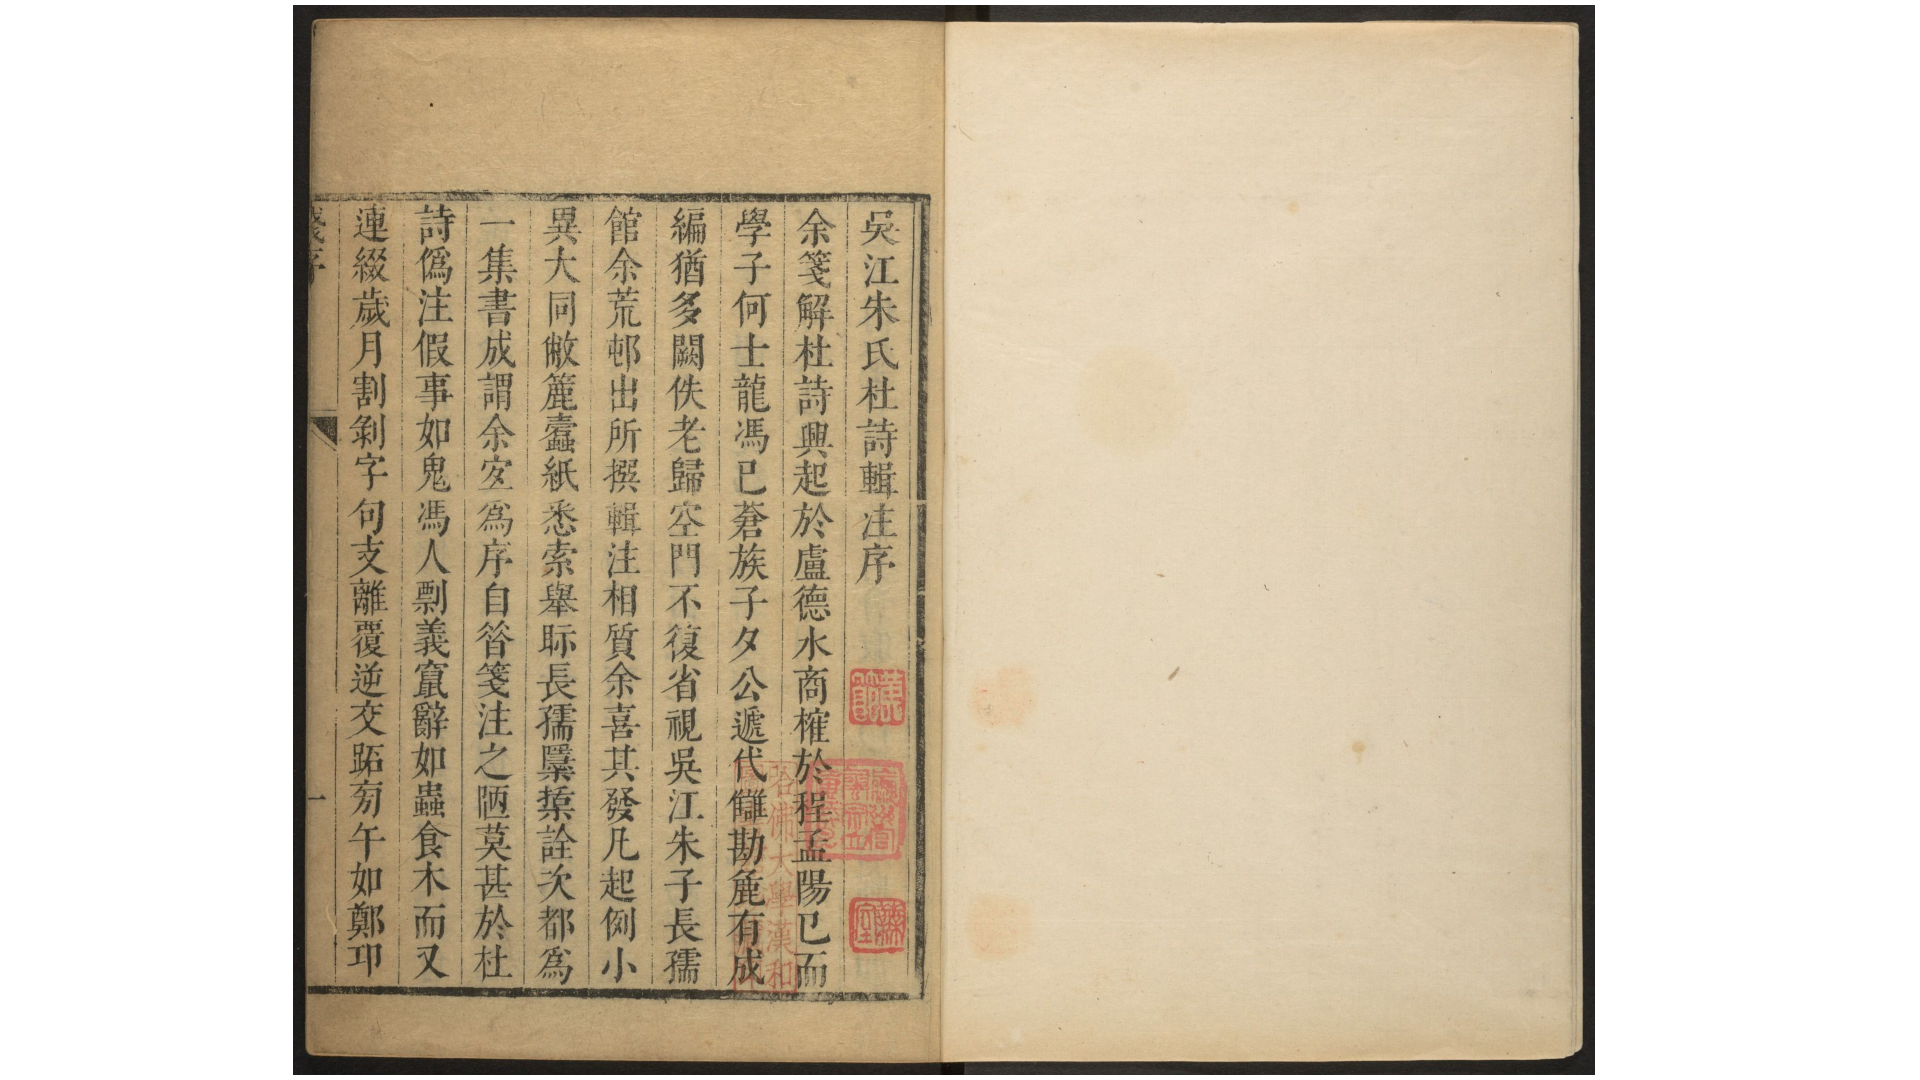 吳江朱氏杜詩輯注序
余箋解杜詩興起於盧德水商榷於程孟陽已而
學子何士龍馮已蒼族子夕公遞代讎勘麄有成
編猶多闕佚老歸空門不復省視吳江朱子長孺
館余荒邨出所撰輯注相質余喜其發凡起例小
異大同敝簏蠹紙悉索舉眎長孺櫽椝詮次都為
一集書成謂余宐為序自咎箋注之陋莫甚於杜
詩僞注假事如鬼馮人剽義竄辭如蟲食木而又
連綴歲月割剝字句支離覆逆交跖㫄午如鄭卬
箋序
一
哈佛大學漢和